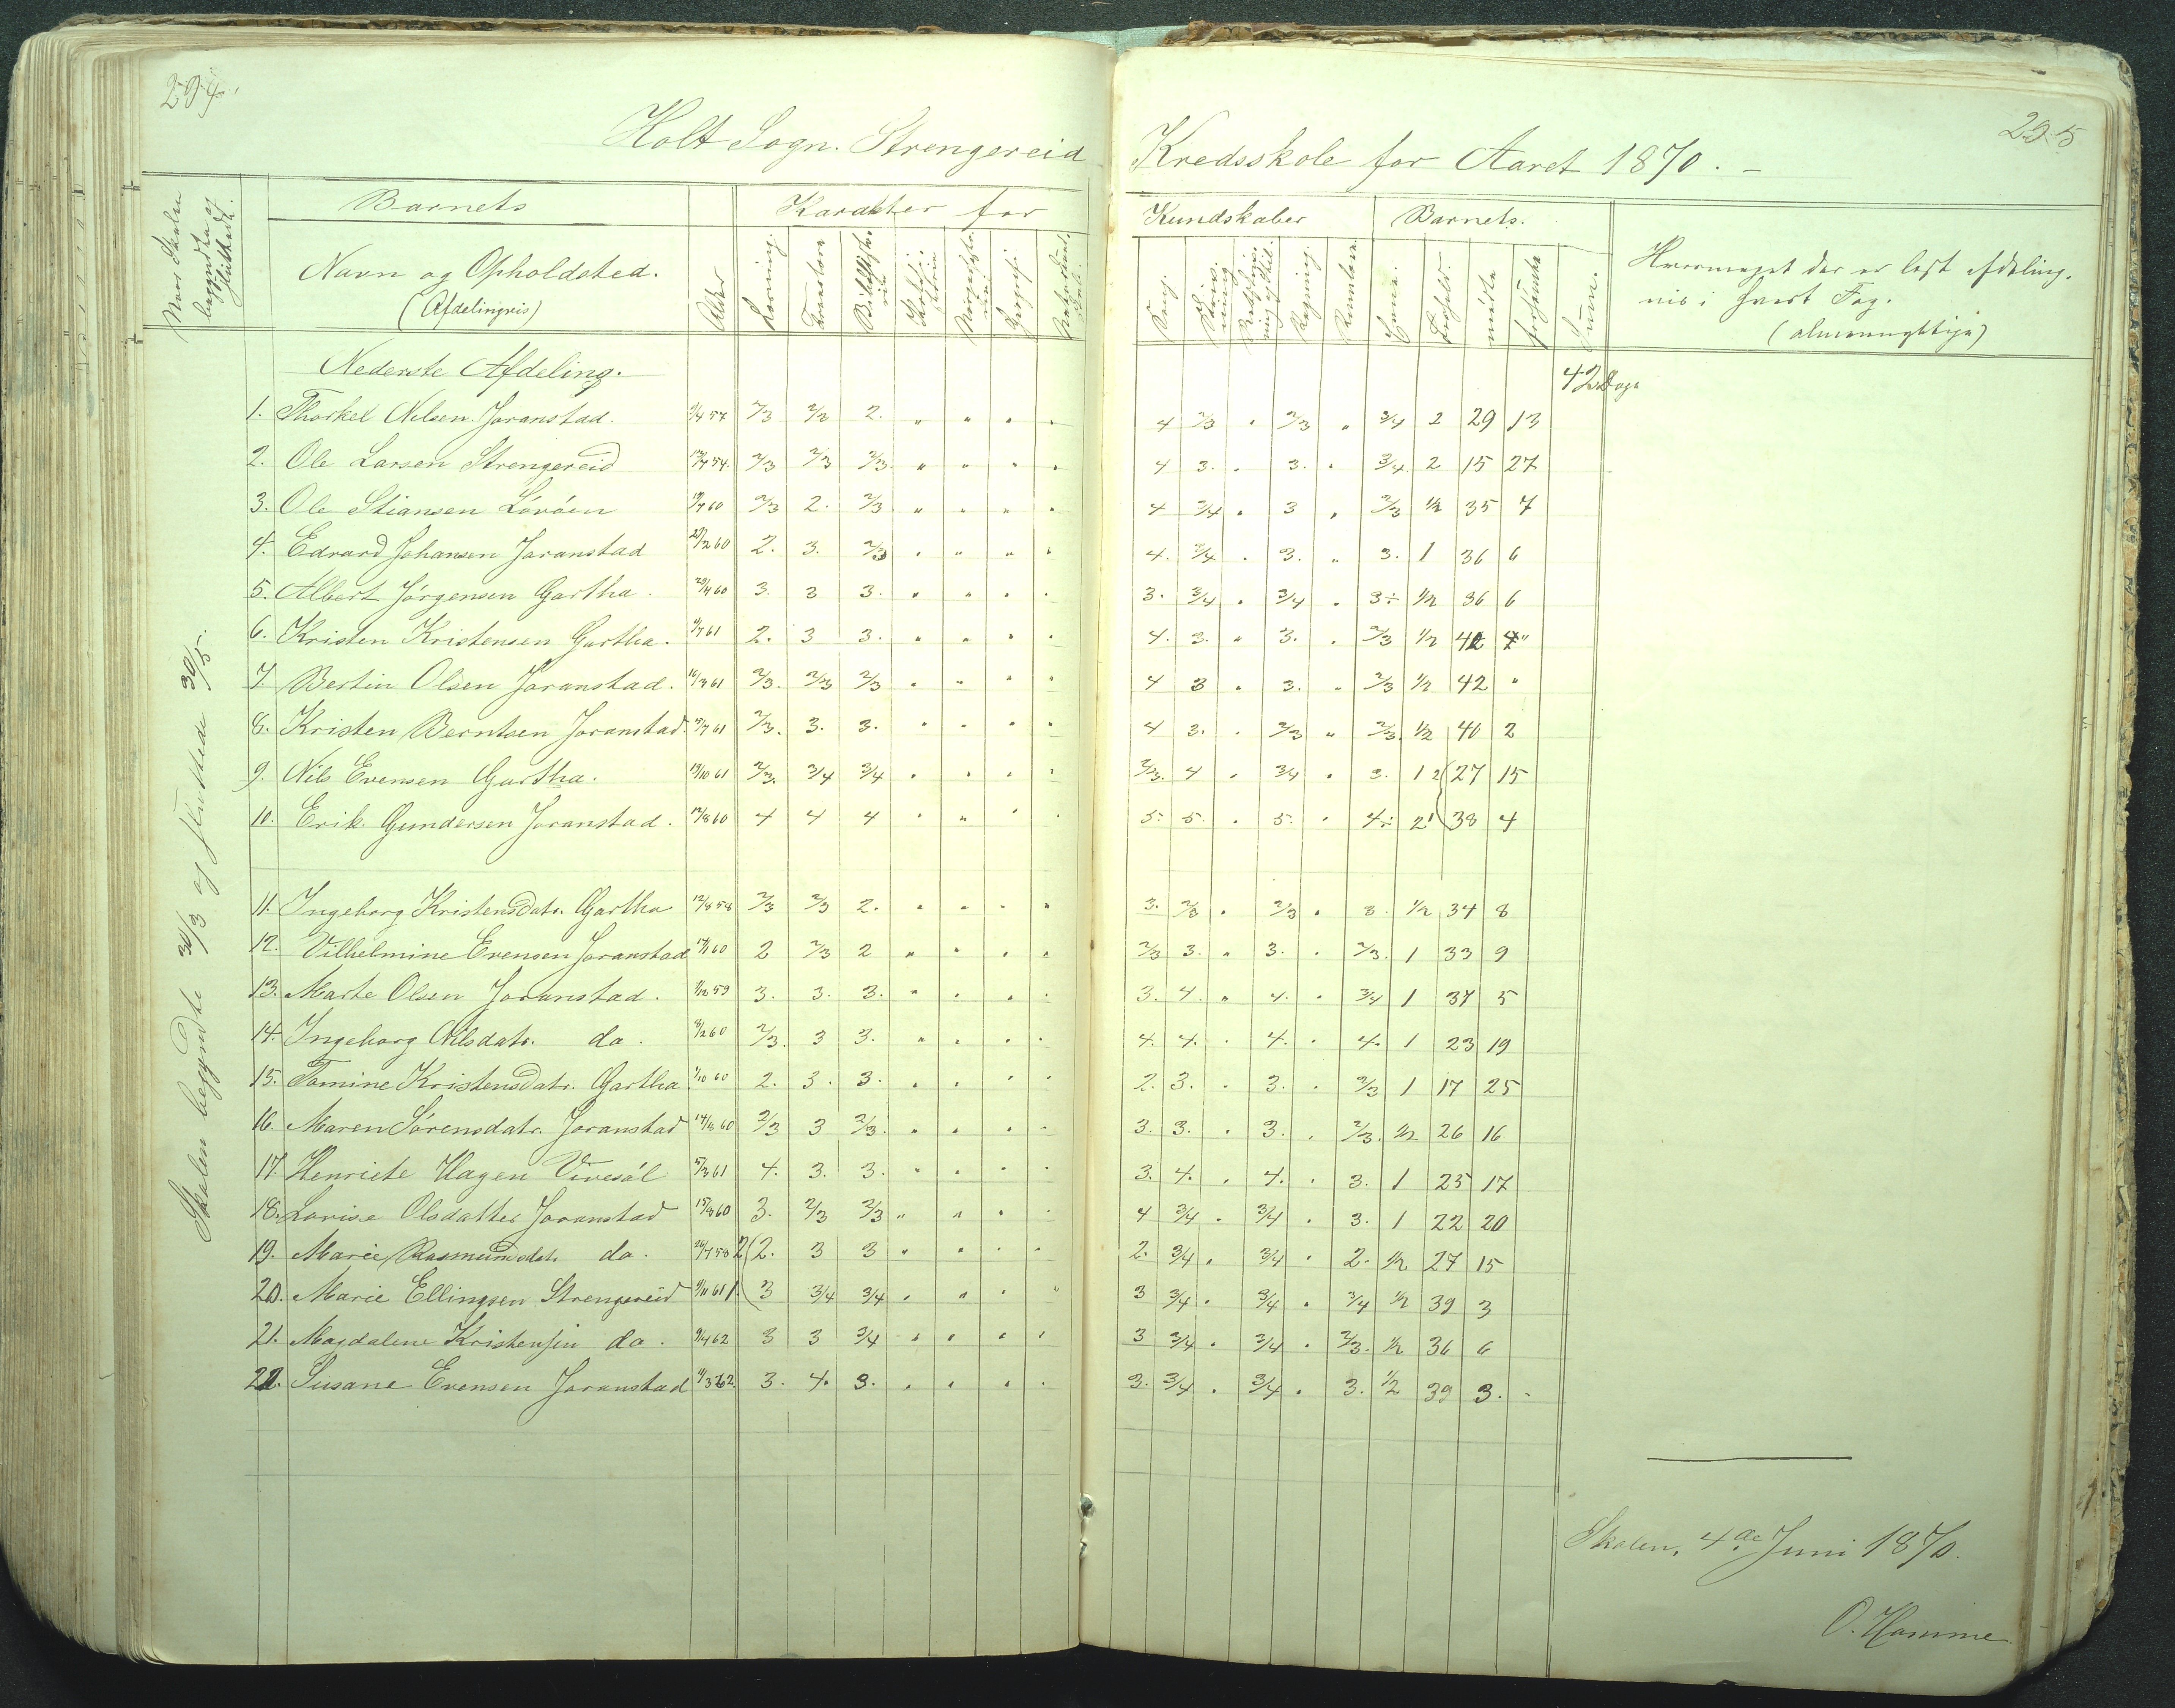 234.
235
Holt Sogn. Strengereid Kredsskole for Aaret 1870. -
Naar Skolen begyndte og sluttede.
Barnets
Karakter for
Kundskaber
Barnets.
Navn og Opholdsted.
(Afdelingvis)
Alder
Læsning.
Forsømte
Sum.
Hvormeget der er læst afdeling-
vis i hvert Fag.
(almueskolen)
Skolen begyndte 30/3 og sluttede 30/5.
Nederste Afdeling.
42 Dage
1. Thorkel Nilsen Joranstad. 9/4 57 2/3 2/2 2. " " " " 4 2/3 " 2/3 " 3/4 2 29 13
2. Ole Larsen Strengereid 2/3 2/3 2/3 " " " " 4 3. " 3. " 3/4 2 15 27
3. Ole Stiansen Lövöen 2/3 2. 2/3 " " " " 4 3/4 " 3 " 2/3 1/2 35 7
4. Edvard Johansen Joranstad 2. 3. 2/3 " " " " 4. 3/4 " 3. " 3. 1 36 6
5. Albert Jörgensen Gartha. 29/4 60 3. 3 3. " " " " 3. 3/4 " 3/4 " 3÷ 1/2 36 6
6. Kristen Kristensen Gartha. 2. 3 3. " " " " 4. 3. " 3. " 2/3 1/2 42 "
7. Bertin Olsen Joranstad. 16/3 61 2/3. 2/3 2/3 " " " " 4 3 " 3. " 2/3 1/2 42 "
8. Kristen Berntsen Joranstad. 2/3. 3. 3. " " " " 4 3. " 2/3 " 2/3 1/2 40 2
9. Nils Evensen Gartha. 19/10 61 2/3. 3/4 3/4 " " " " 2/3. 4 " 3/4 " 3. 1 2 27 15
10. Erik Gundersen Joranstad. 12/8 60 4 4 4 " " " " 5. 5. " 5. " 4÷ 2 1 38 4
11. Ingeborg Kristensdatr. Gartha 12/8 58 2/3 2/3 2. " " " " 3. 2/3 " 2/3 " 3. 1/2 34 8
12. Vilhelmine Evensen Joranstad 2 2/3 2 " " " " 2/3 3. " 3. " 2/3. 1 33 9
13. Marte Olsen Joranstad. 3. 3. 3. " " " " 3. 4. " 4. " 3/4 1 37 5
14. Ingeborg Nilsdatr. do. 8/2 60 2/3. 3 3. " " " " 4. 4. " 4. " 4. 1 23 19
15. Tomine Kristensdatr. Gartha 2. 3. 3. " " " " 2. 3. " 3. " 2/3 1 17 25
16. Maren Sörensdatr. Joranstad 14/8 60 2/3 3 2/3. " " " " 3. 3. " 3. " 2/3. 1/2 26 16
17. Henriete Hagen Vivesöl 5/3 61 4. 3. 3. " " " " 3. 4. " 4. " 3. 1 25 17
18. Lovise Olsdatter Joranstad 3. 2/3 2/3 " " " " 4 3/4 " 3/4 " 3. 1 22 20
19. Marie Rasmusdatr. do. 2 2. 3 3 " " " " 2. 3/4 " 3/4 " 2. 1/2 27 15
20. Marie Ellingsen Strengereid 9/11 61 1. 3 3/4 3/4 " " " " 3 3/4 " 3/4 " 3/4 1/2 39 3
21. Magdalene Kristensen do. 9/4 62 3 3 3/4 " " " " 3 3/4 " 3/4 " 2/3. 1/2 36 6
22. Susane Evensen Joranstad 3. 4. 3. " " " " 3. 3/4 " 3/4 " 3. 1/2 39 3.
Skolen, 4de Juni 1870.
O. Hamme